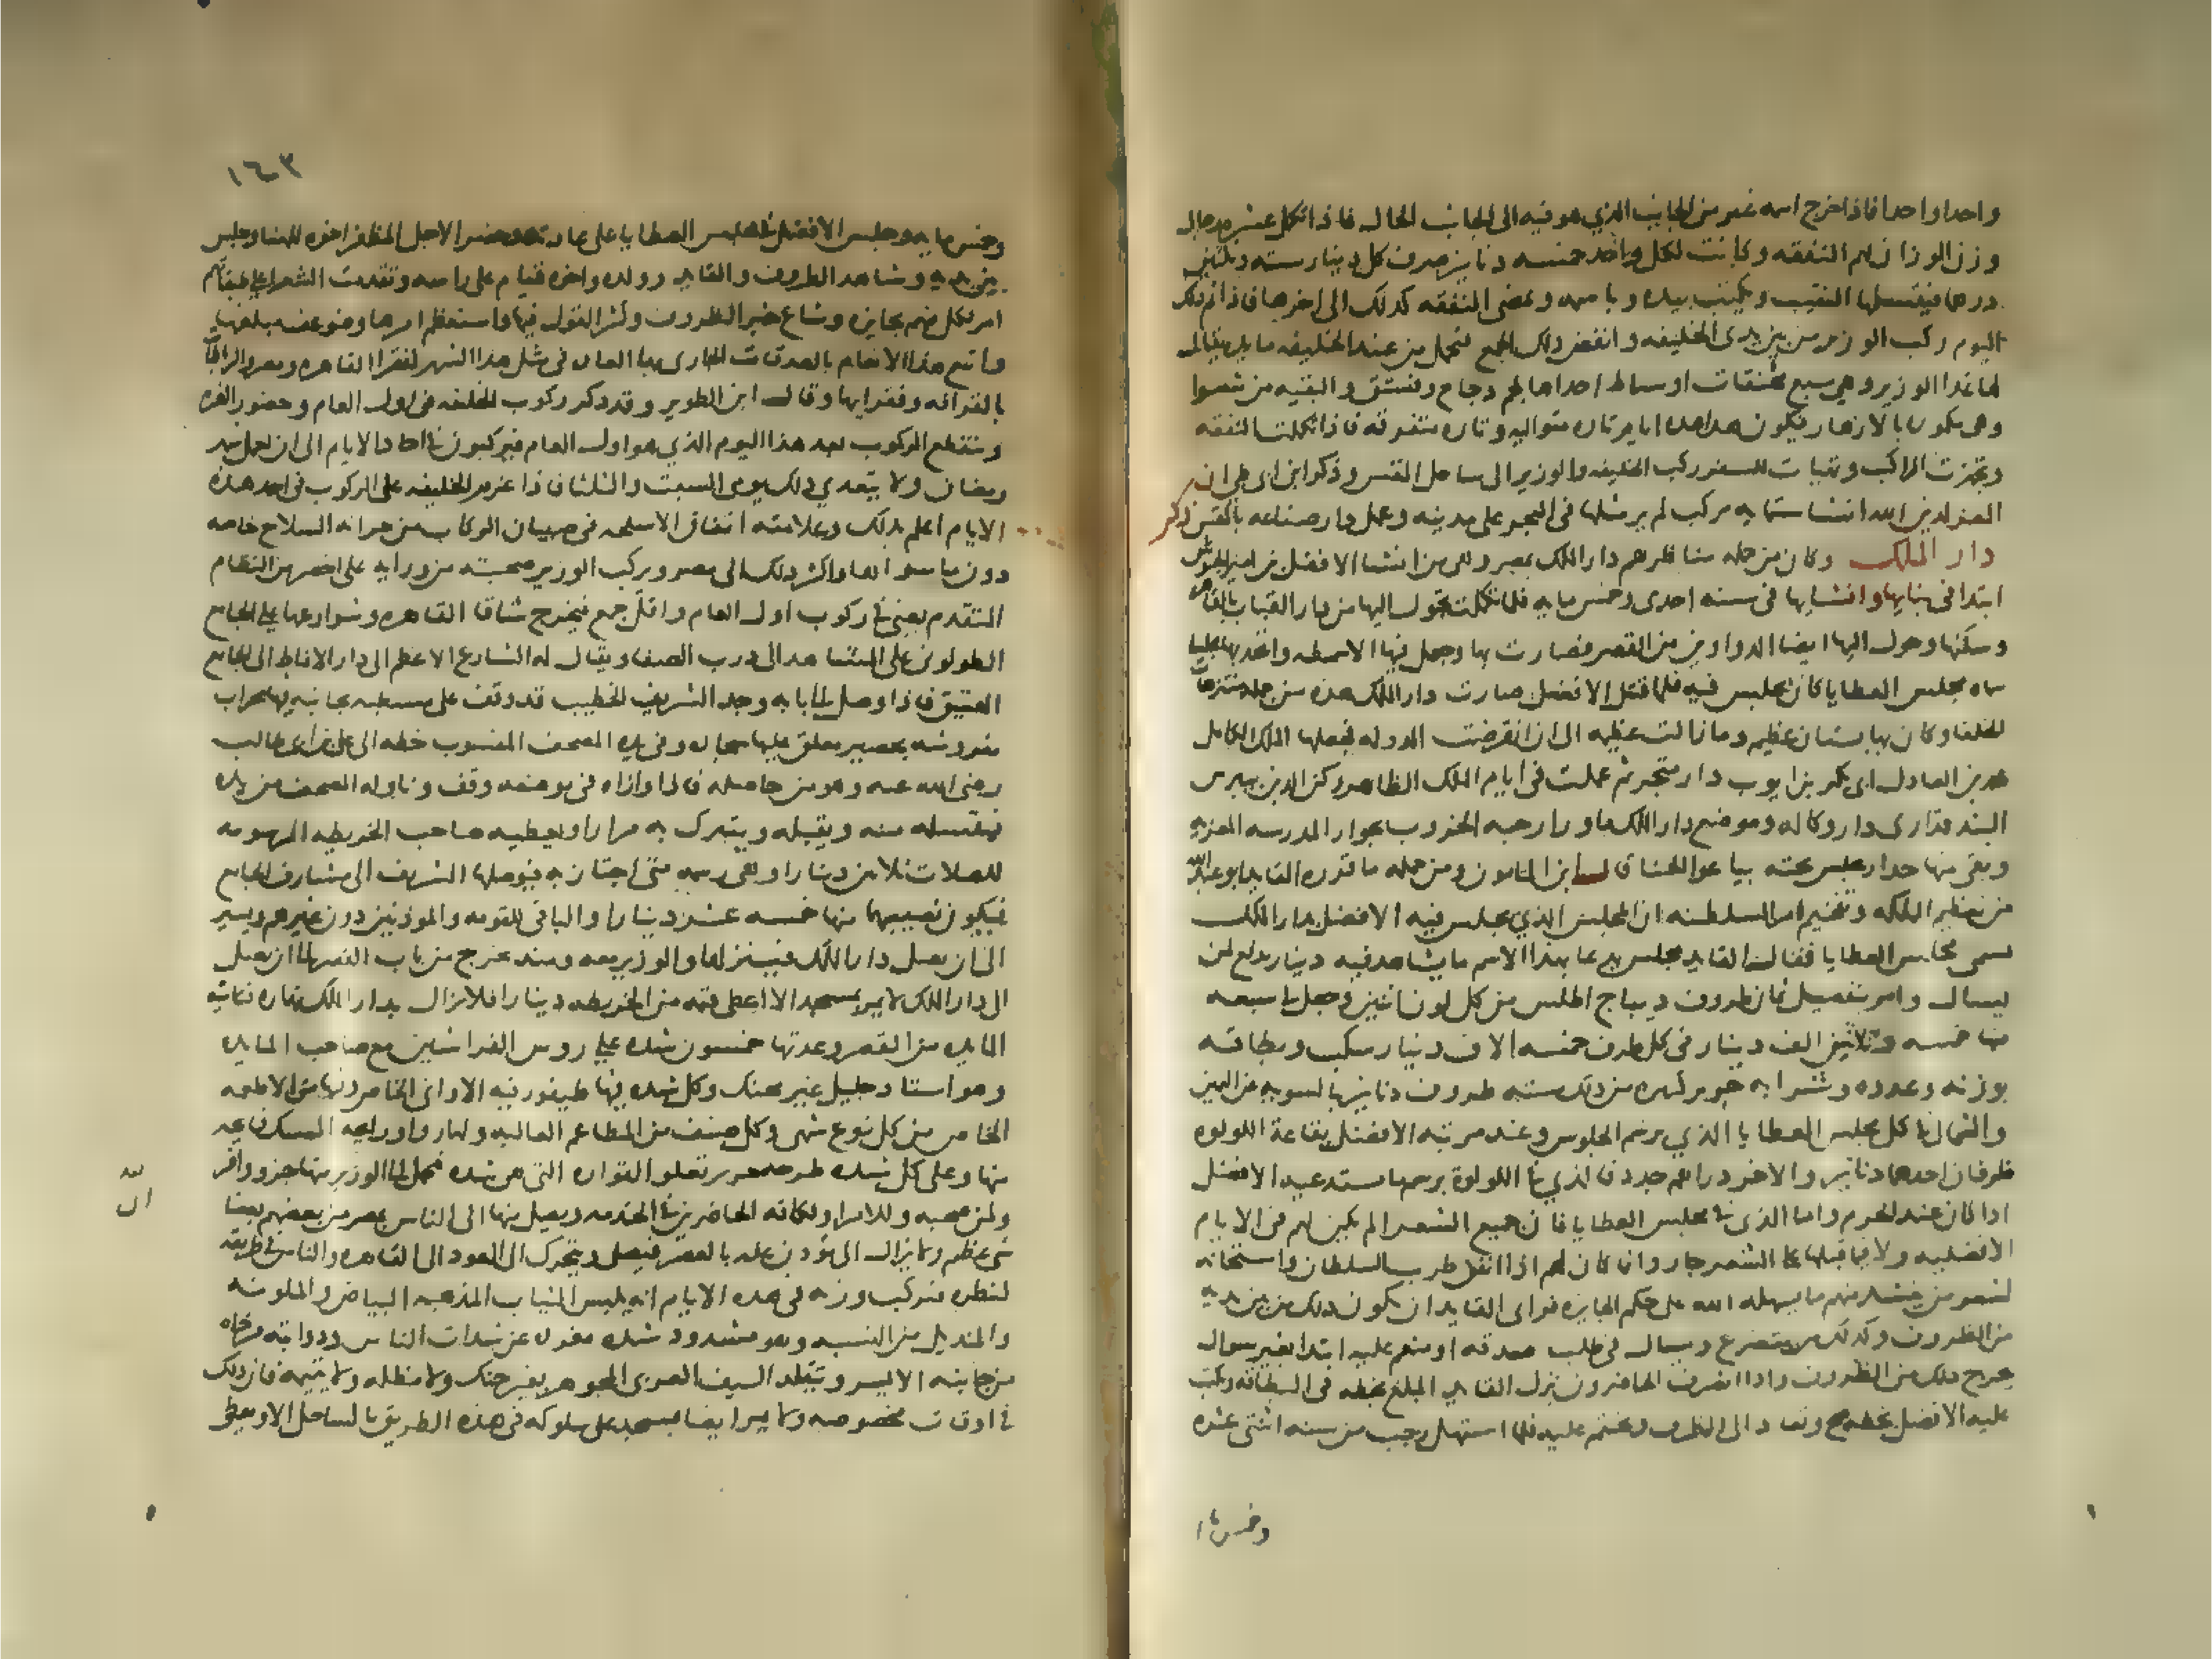 واحدا واحدا فاذا خرج اسمه عبر من الجانب الذي هو فيه الى الجانب الخال فاذا تكل عشره رجال
وزن الوزان لهم النفقه وكانت لكل واحد خمسه دنانير صرف كل دينار سته وثلثين
درهما فيتسلمها النقيب ويكتب بيده وباسمه وتمضى النفقه كذلك الى اخرها فاذا تم ذلك
اليوم ركب الوزير من بين يدى الخليفه وانفض ذلك الجمع فيحمل من عند الخليفه مايده يقال لها
غدا الوزير وهى سبع مجنقات اوساط احداها بلحم دجاج وفستق والبقيه من شوا
وهى مكموره بالازهار فيكون هذا عده ايام تاره متواليه وتاره متفرقه فاذا تكلت النفقه
وتجهزت المراكب وتهيات للسفر ركب الخليفه والوزير الى ساحل المقس وذكر ابن ابى طى ان
المعز لدين الله انشا ستمايه مركب لم ير مثلها فى البحر على مدينه وعمل دار صناعه بالمقس ذكر
دار الملك وكان من جمله مناظرهم دار الملك بمصر وهى من انشا الافضل بن امير الجيوش
ابتدا فى بنايها وانشايها فى سنه احدى وخمس مايه فلما تكلت تحول اليها من دار القباب بالقاهره
وسكنها وحول اليها ايضا الدواوين من القصر فصارت بها وجعل فيها الاسمطه واتخذ بها مجلسا
سماه مجلس العطايا كان يجلس فيه فلما قتل الافضل صارت دار الملك هذه من جمله منتزهات
الخلفا وكان بها بستان عظيم وما زالت عظيمه الى ان انقرضت الدوله فجعلها الملك الكامل
محمد بن العادل ابى بكر بن ايوب دار متجر ثم عملت فى ايام الملك الظاهر ركن الدين بيبرس
البندقدارى دار وكاله وموضع دار الملك ماورا رحبه الخروب بجوار المدرسه المعزيه
وبقى منها جدار يجلس تحته بياعوا الحنا قال ابن المامون ومن جمله ما قرره القايد ابو عبد الله
من تعظيم المملكه وتفخيم امر السلطنه ان المجلس الذي يجلس فيه الافضل بدار الملك
يسمى مجلس العطايا فقال القايد مجلس يدعا بهذا الاسم ما يشاهد فيه دينار يدفع لمن
يسال وامر بتفصيل ثمان ظروف ديباج اطلس من كل لون اثنين وجعل فى سبعه
منها خمسه وثلاثين الف دينار فى كل ظرف خمسه الاف دينار سكب وبطاقه
بوزنه وعدده وشرابه حرير كبيره من ذلك سته ظروف دنانير بالسويه عن اليمين
والشمال فى كل مجلس العطايا الذي برسم الجلوس وعند مرتبه الافضل بقاعة اللولوه
ظرفان احدهما دنانير والاخر دراهم جدد فالذي فى اللولوة برسم ما يستدعيه الافضل
اذا كان عند الحرم واما الذى فى مجلس العطايا فان جميع الشعرا لم يكن لهم فى الايام
الافضليه ولا فيما قبلها على الشعر جار وانما كان لهم اذا اتفق طرب السلطان واستحسانه
لشعر من ينشده منهم ما يسهله الله على حكم الجايزه فراى القايد ان يكون ذلك من بين يديه
من الظروف وكذلك من يتضرع ويسال فى طلب صدقه او ينعم عليه ابتدا بغير سوال
يخرج ذلك من الظروف واذا انصرف الحاضرون نزل القايد المبلغ بخطه فى البطاقه ويكتب
عليه الافضل بخطه صح ويعاد الى الظرف ويختم عليه فلما استهل رجب من سنه اثنتى عشره
وخمس مايه
١٤٣
وخمس مايه وجلس الافضل فى مجلس العطايا على عادته وحضر الاجل المظفر اخوه للهنا وجلس
بين يديه وشاهد الظروف والقايد وولده واخوه قيام على راسه وتقدمت الشعرا على طبقاتهم
امر لكل منهم بجايزه وشاع خبر الظروف وكثر القول فيها واستعظم امرها وضوعف مبلغها
واتبع هذا الانعام بالصدقات الجارى بها العاده فى مثل هذا الشهر لفقرا القاهره ومصر والرباطات
بالقرافه وفقرايها وقال ابن الطوير وقد ذكر ركوب الخليفه فى اول العام وحضور الغره
وينقطع الركوب بعد هذا اليوم الذي هو اول العام فيركبون فى احاد الايام الى ان يحل شهر
رمضان ولا يتعدى ذلك يومى السبت والثلثا فاذا عزم الخليفه على الركوب فى احد هذه
الايام اعلم بذلك وعلامته انفاق الاسلحه فى صبيان الركاب من خزانه السلاح خاصه
دون ما سواها واكثر ذلك الى مصر ويركب الوزير صحبته من ورايه على اخصر من النظام
المتقدم يعنى فى ركوب اول العام واقل جمع فيخرج شاقا القاهره وشوارعها على الجامع
الطولونى على المشاهد الى درب الصفا ويقال له الشارع الاعظم الى دار الانماط الى الجامع
العتيق فاذا وصل الى بابه وجد الشريف الخطيب قد وقف على مسطبه بجانبه فيها محراب
مفروشه بحصير معلق عليها سجاده وفى يده المصحف المنسوب خطه الى على بن ابى طالب
رضى الله عنه وهو من حاصله فاذا وازاه فى موضعه وقف وناوله المصحف من يده
فيتسلمه منه ويقبله ويتبرك به مرارا ويعطيه صاحب الخريطه المرسومه
للصلات ثلاثين دينارا وهى رسمه متى اجتاز به فيوصلها الشريف الى مشارف الجامع
فيكون نصيبهما منها خمسه عشر دينارا والباقى للقومه والموذنين دون غيرهم ويسير
الى ان يصل دار الملك فينزلها والوزير معه ومنذ يخرج من باب القصر الى ان يصل
الى دار الملك لا يمر بمسجد الا اعطى قيمه من الخريطه دينارا فلا يزال بدار الملك نهاره فتاتيه
المايده من القصر وعدتها خمسون شده على روس الفراشين مع صاحب المايده
وهو استاد جليل غير محنك وكل شده فيها طيفور فيه الاوانى الخاص وفيها من الاطعمه
الخاص من كل نوع شهى وكل صنف من المطاعم العاليه ولها روا وورايحه المسك فايحه
منها وعلى كل شده طرحه حرير تعلو القواره التى هى شده فيحمل الى الوزير منها جزو وافر
ولمن صحبه وللامرا ولكافه الحاضرين فى الخدمه ويصل منها الى الناس بمصر من بعضهم بعضا
شى عظيم ولا يزال الى يوذن عليه بالعصر فيصلى ويتحرك الى العود الى القاهره والناس فى طريقه
لنظره فيركب وزيه فى هذه الايام انه يلبس الثياب المذهبه البياض والملونه
والمنديل من النسبه وهو مشدود شده مفرده عن شدات الناس وذوابته مرخاه
من جانبه الايسر ويتقلد السيف العربى المجوهر بغير حنك ولا مظله ولا يتيمه فان ذلك
فى اوقات مخصوصه ولا يمر ايضا بمسجد على سلوكه فى هذه الطريق بالساحل الا ويعطى